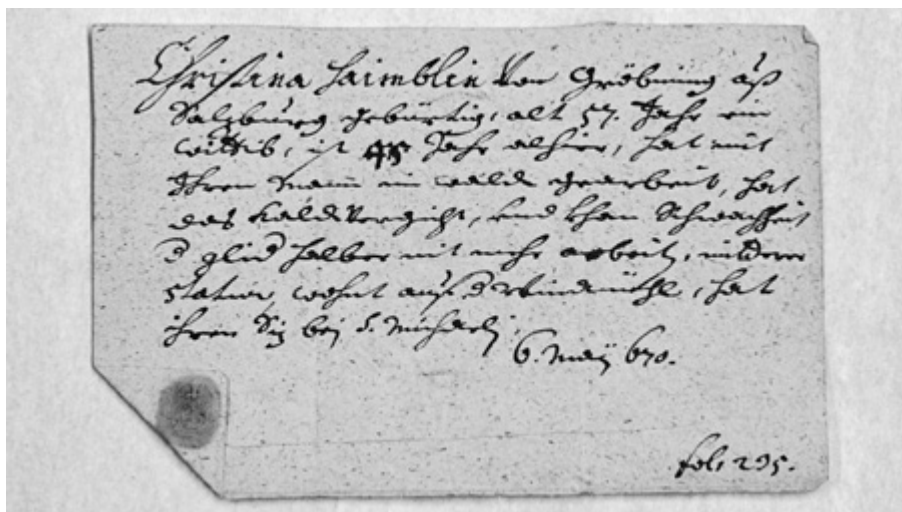 Christina Haimblin Von Gröbming auß
Salzburg gebürtig, alt 57. Jahr ein
wittib, ist 45 Jahr alhier, hat mit
Ihren Mann im wald gearbeit, hat
das kalde Vergicht, und khan Schwachheit
d glid halber nit mehr arbeit, mitderer
statur, wohnt auf d Windmühl, hat
ihren Siz bej S. Michaelj.
6. Maij 670.
fol. 295.